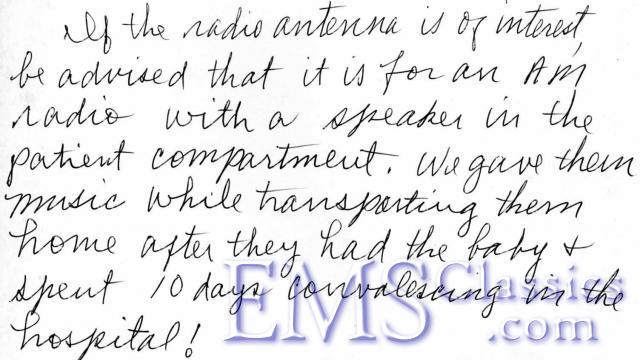 If the radio antenna is of interest,
be advised that it is for an AM
radio with a speaker in the
patient compartment. We gave them
music while transporting them
home after they had the baby &
spent 10 days convalescing in the
hospital!
EMSClassics
.com